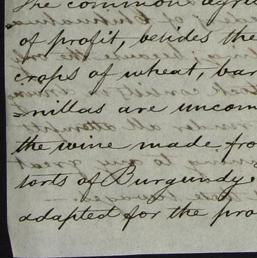 The common agree
of profit, besides the
crops of wheat, bar
nillas are uncom
the wine made fro
sorts of Burgundy
adapted for the pro